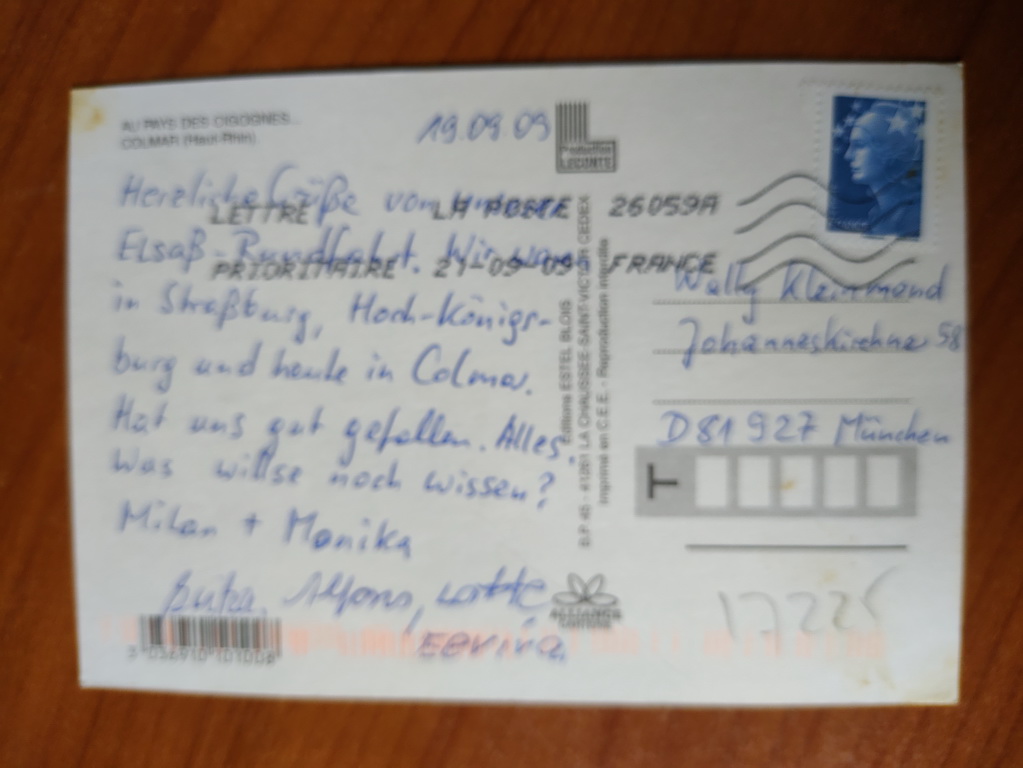 AU PAYS DES CIGOGNES...
COLMAR (Haut-Rhin).
19.09.09
Production
LECONTE
Herzliche Grüße von unserer
Elsaß-Rundfahrt. Wir waren
in Straßburg, Hoch-Königs-
burg und heute in Colmar.
Hat uns gut gefallen. Alles.
Was willse noch wissen?
Milan + Monika
Alfons, Lotte
LETTRE LA POSTE 26059A
PRIORITAIRE 21-09-09 FRANCE
FRANCE
Wally Kleinmond
Johanneskirchner 58
D 81 927 München
T
Editions ESTEL BLOIS
B.P. 45 - 41261 LA CHAUSSEE-SAINT-VICTOR CEDEX
Imprimé en C.E.E. - Reproduction interdite
ALLIANCE
17225